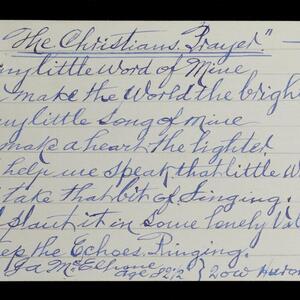 The Christians. Prayer."
ny little Word of Mine
make the World the brigh
ny little Song of mine
make a heart the lighter
help me speak that little W
take that bit of Singing.
plant it in some lonely Val
eep the Echoes. Ringing.
age 82½ } 20W Huron